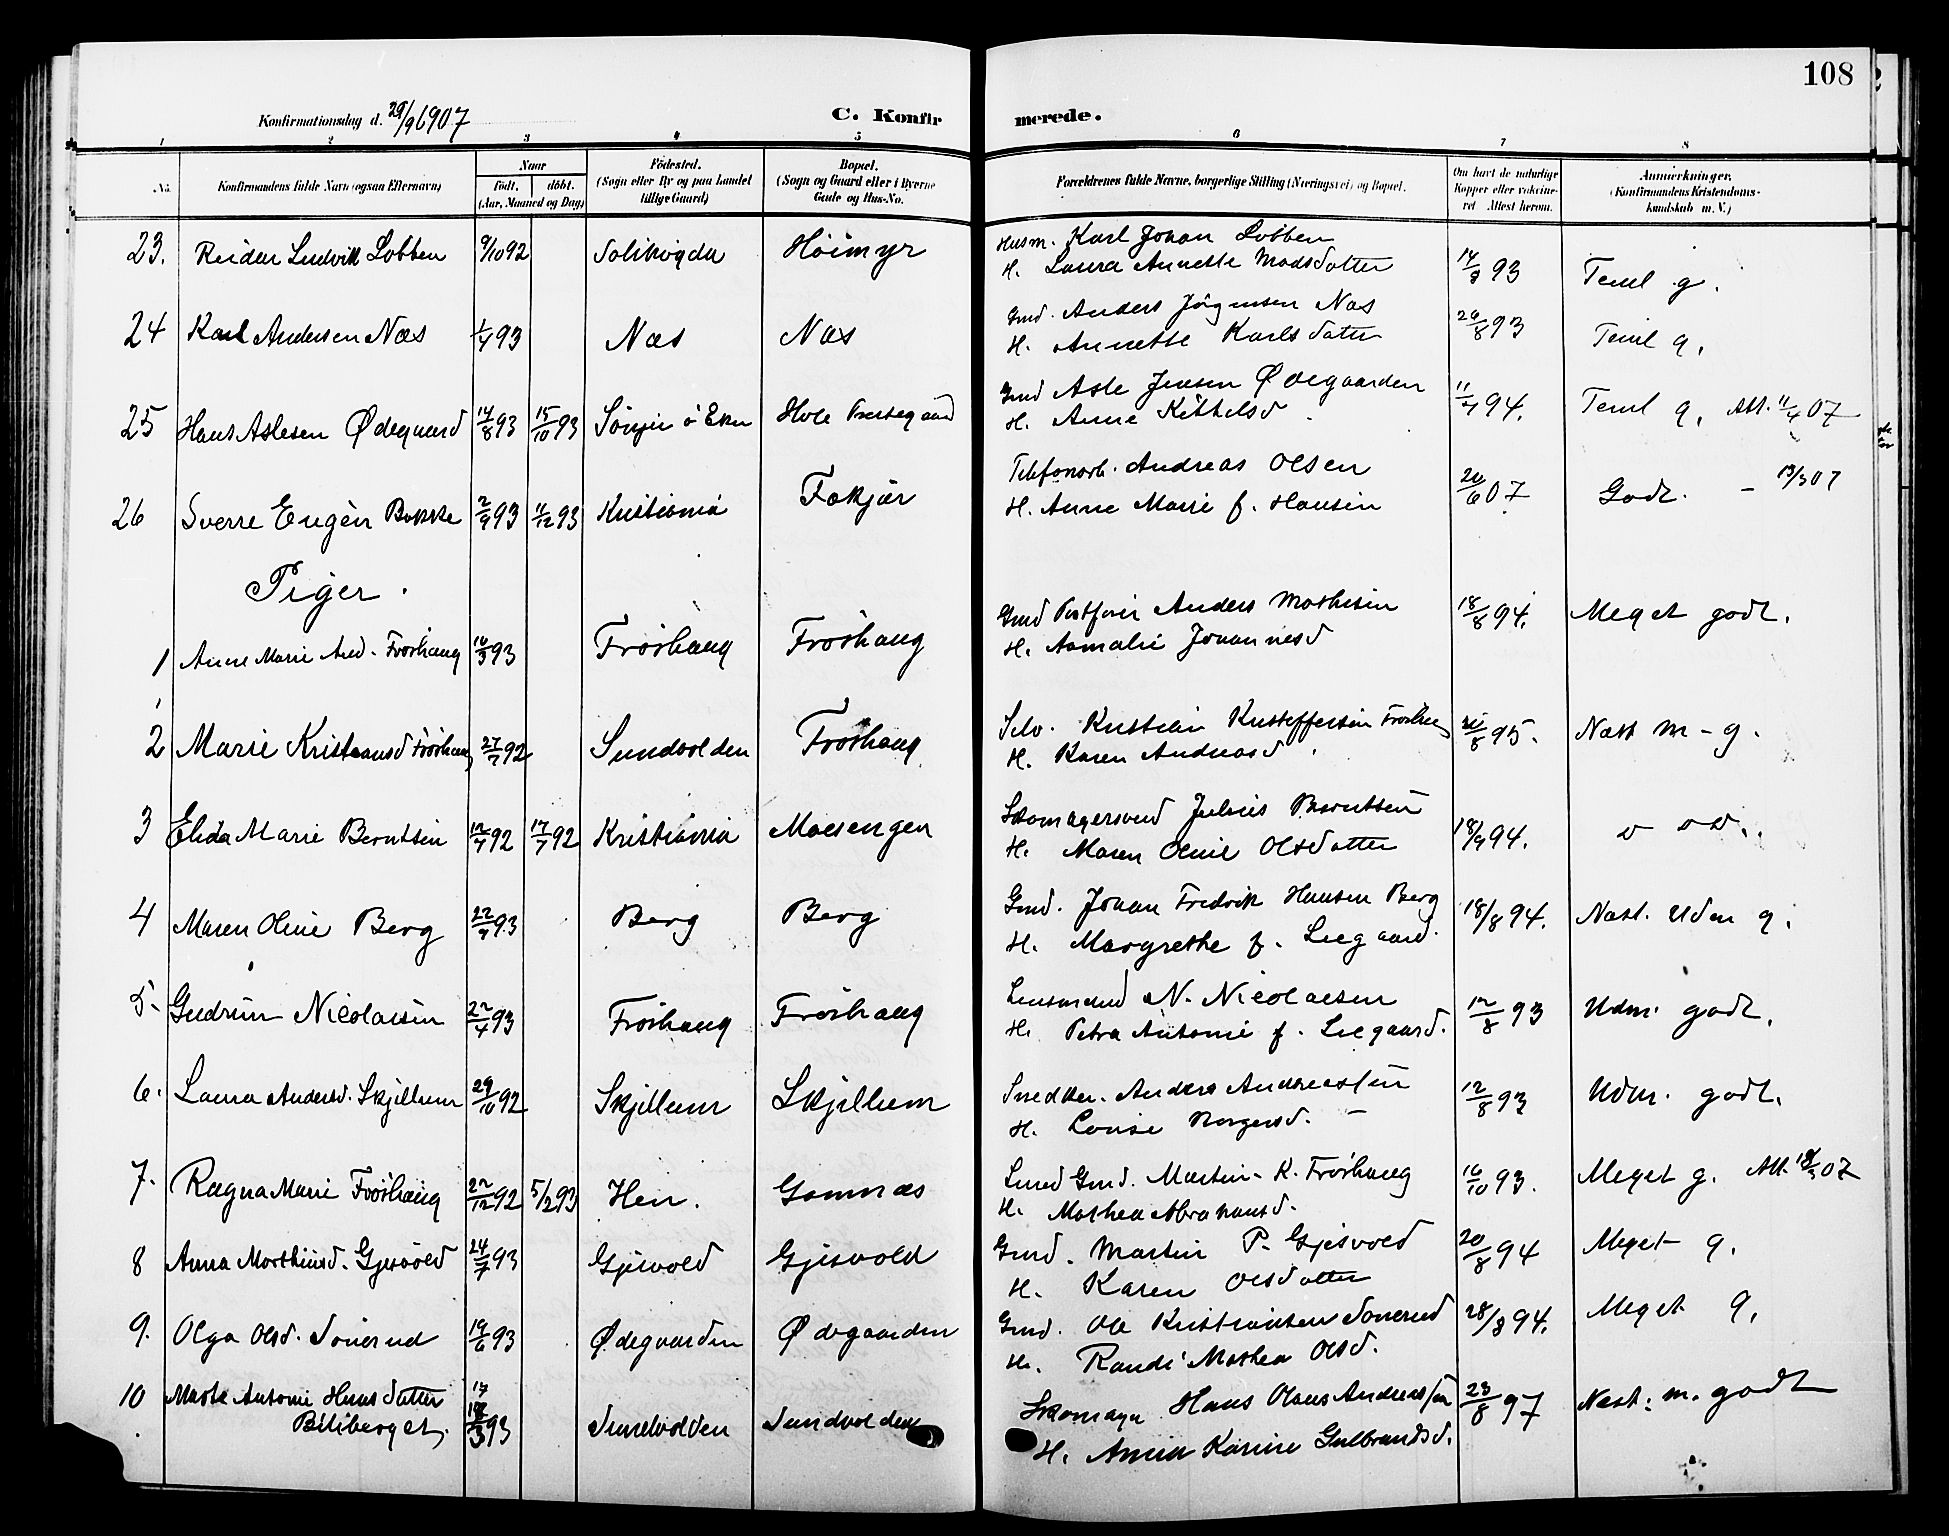 108
Konfirmationsdag d. 29/9 1907 C. Konfirmerede.
1 2 3 4 5 6 7 8
No. Konfirmandens fulde Navn (ogsaa Efternavn) Naar født. døbt. (Aar, Maaned og Dag) Fødested. (Sogn eller By og paa Landet tillige Gaard) Bopæl. (Sogn og Gaard eller i Byerne Gade og Hus-No. Forældrenes fulde Navne, borgerlige Stilling (Næringsvei) og Bopæl. Om havt de naturlige Kopper eller vaccineret. Attest herom. Anmærkninger. (Konfirmandens Kristendomskundskab m. V.)
23. Reidar Ludvik Lobben 9/10 92 Solihøgda Høimyr Husm. Karl Johan Lobben 93 Teml g.
H. Laura Annette Madsdatter
24 Karl Andersen Næs 93 Næs Næs Gmd. Anders Jörgensen Næs 93 Teml g.
H. Annette Karlsdatter
25 Hans Aslesen Ødegaard 14/8 93 15/10 93 Hole Prestegaard Gmd Asle Jensen Ødegaarden 94. Teml g. Att. 11/4 07
H. Anne Kittelsd.
26 Sverre Eugèn Bakke 2/9 93 11/12 93 Kristiania Fekjær Telefonarb. Andreas Olsen 20/6 07 Godt. - 13/3 07
H. Anne Marie f. Hansen
Piger.
1 Anne Marie And. Frøshaug 16/3 93 Frøshaug Frøshaug Gmd Postfører Anders Mathisen 18/8 94. Meget godt.
H. Aamalie Johannesd
2 Marie Kristiansd Frøshaug 27/7 92 Sundvolden Frøshaug Selv. Kristian Kristoffersen Frøshaug 95. Næst m-g.
H. Karen Andreasd.
3 Elida Marie Berntsen 12/7 92 17/7 92 Kristiania Moesengen Skomagersvend Julius Berntsen 18/9 94.
H. Maren Oline Olsdatter
4 Maren Oline Berg 93 Berg Berg Gmd. Johan Fredrik Hansen Berg 18/8 94. Næst. Uden g.
H. Margrethe f. Leegaard.
5. Gudrun Nicolaisen 22/4 93 Frøshaug Frøshaug Lensmand N. Nicolaisen 12/8 93 Udm. godt.
H. Petra Antonie f. Leegaard.
6. Laura Andersd. Skjellum 29/10 92 Skjellum Skjellum Snedker. Anders Andreassen 12/8 93 Udm. godt.
H. Louise Borgersd. -
7. Ragna Marie Frøshaug 22/12 92 5/2 93 Hen. Gomnæs Smed Gmd. Martin K. Frøshaug 16/10 93. Meget g. Att. 07
H. Mathea Abrahamsd.
8 Anna Marthinsd. Gjesvold 24/7 93 Gjesvold Gjesvold Gmd. Martin P. Gjesvold 20/8 94 Meget g.
H. Karen Olsdatter
9. Olga Olsd. Sonerud 19/6 93 Ødegaarden Ødegaarden Gmd. Ole Kristiansen Sonerud 28/8 94. Meget g.
H. Randi Mathea Olsd.
10 Marte Antonie Hansdatter 93 Sundvolden Sundvolden Skomager Hans Olaus Andreassen 23/8 97 Næst. m. godt
Biliberget. H. Anna Karine Gulbrandsd.